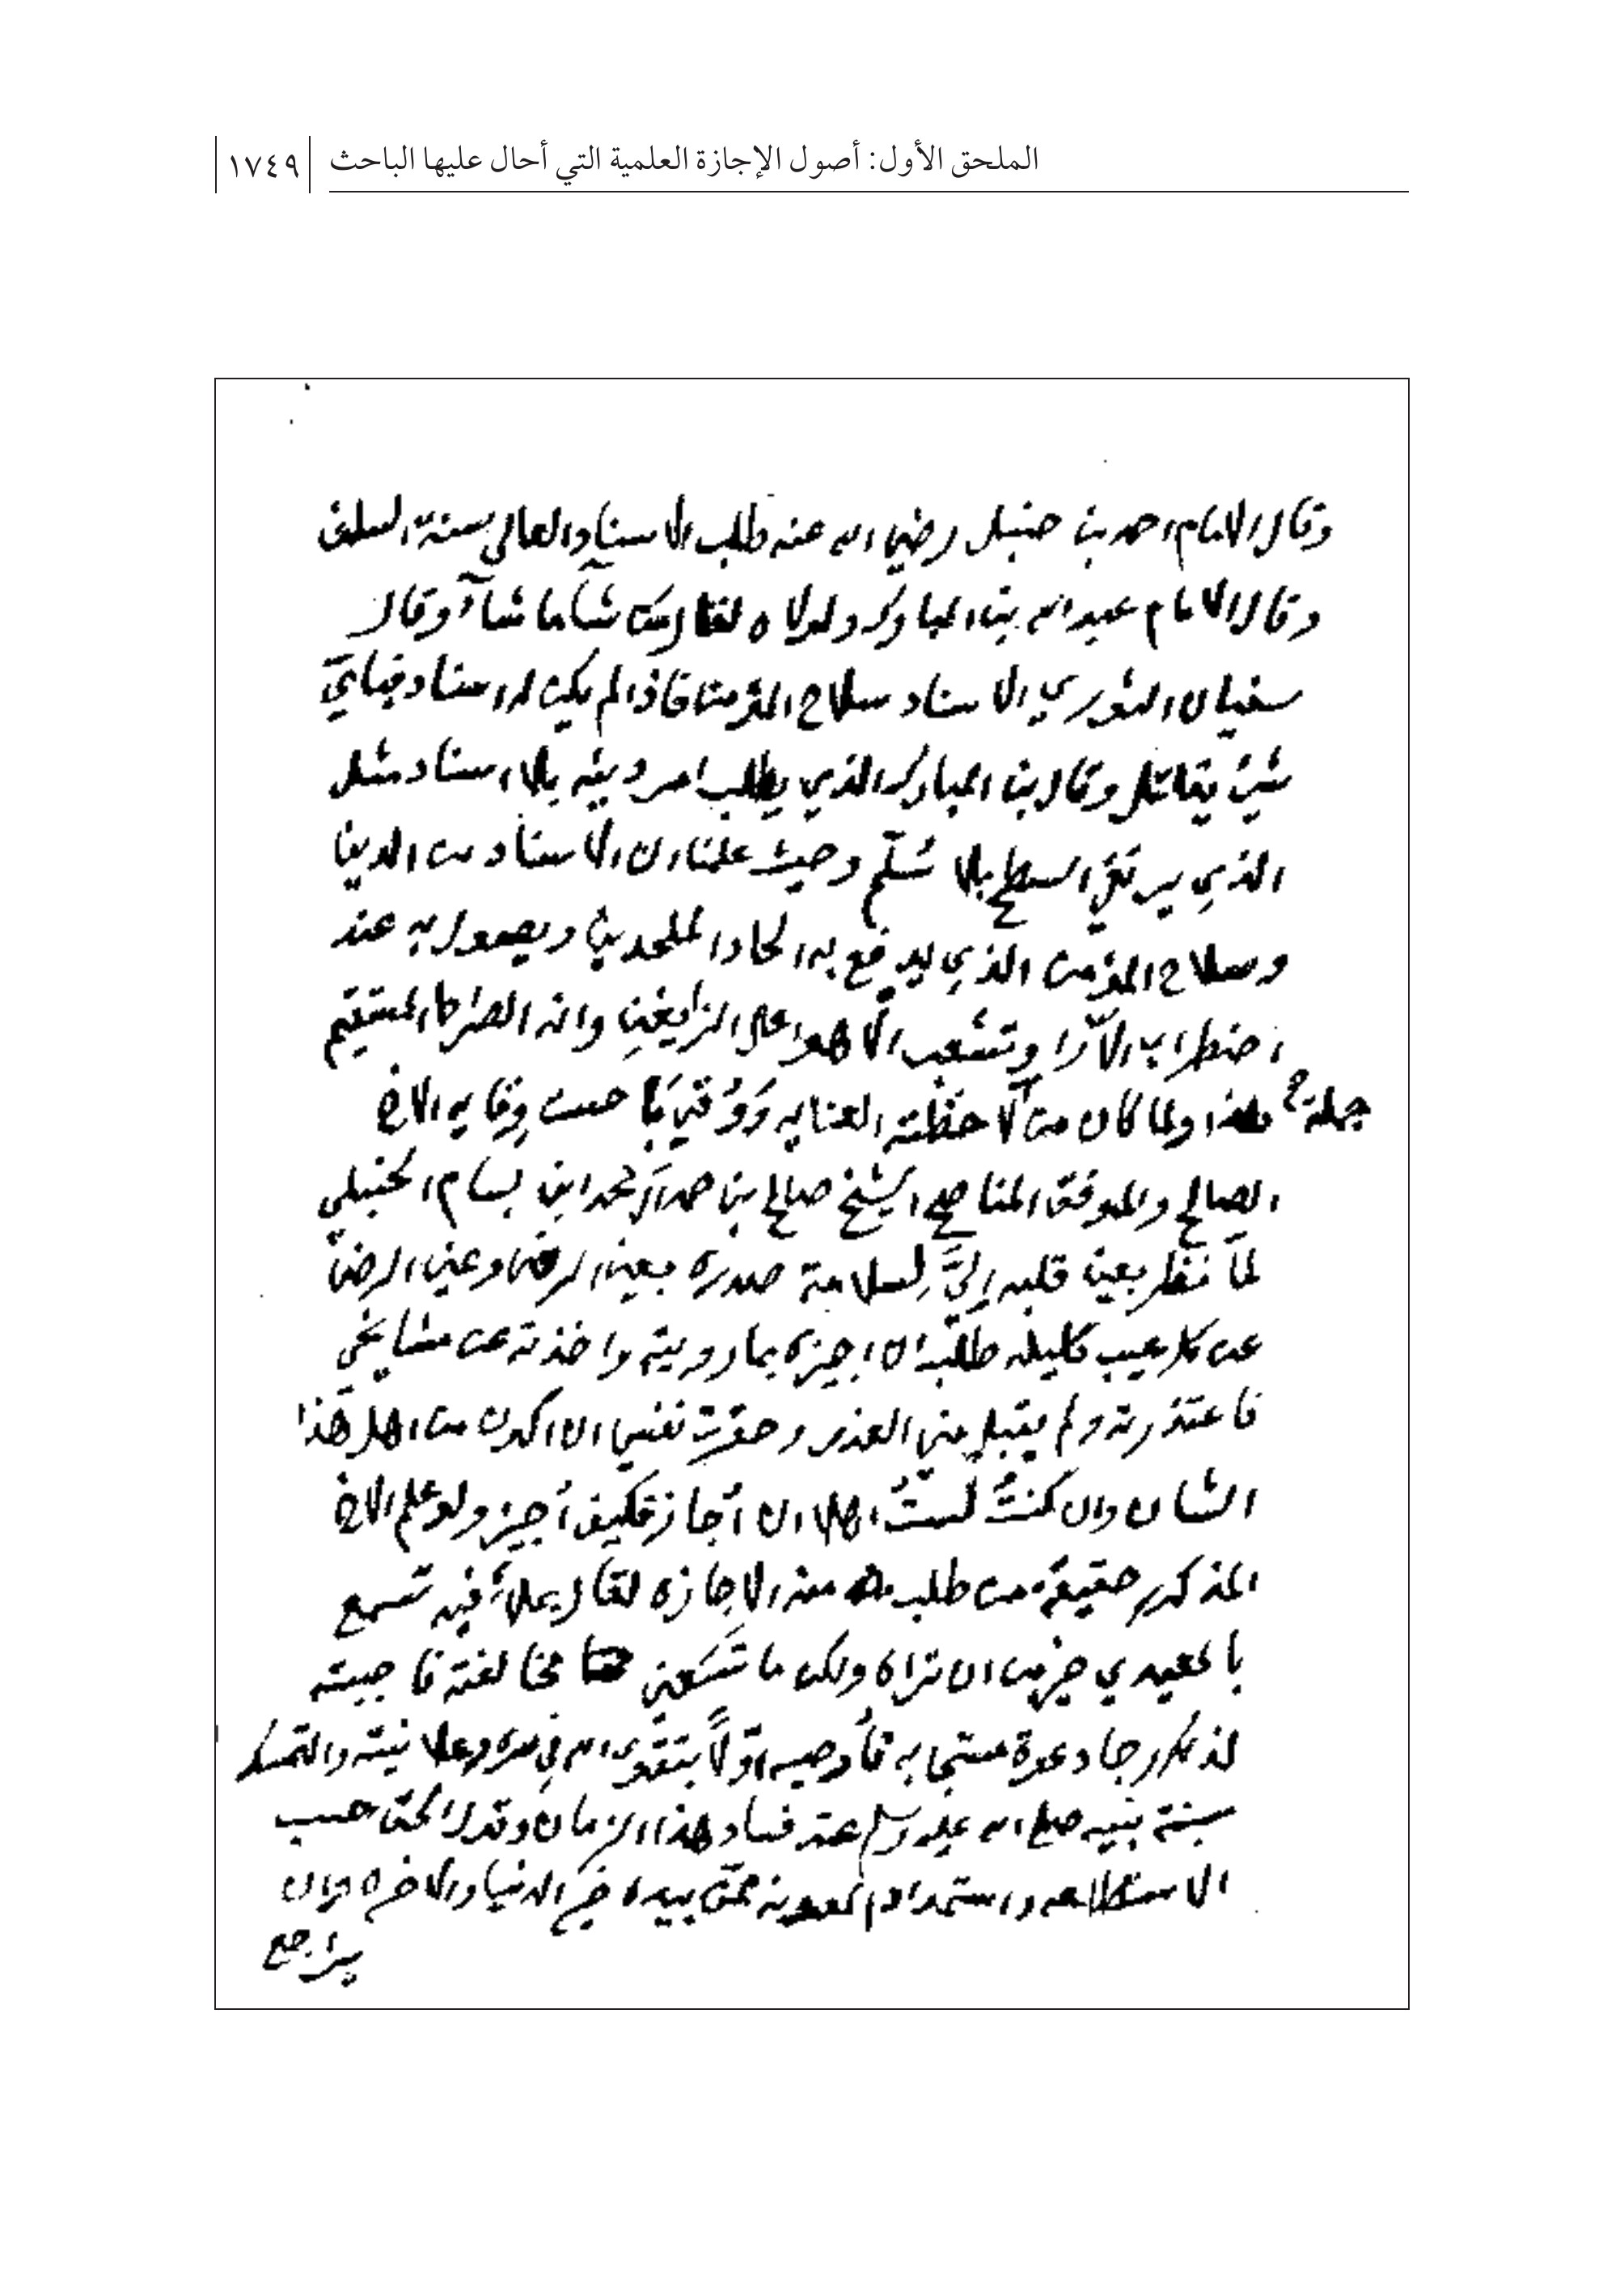 الملحق الأول: أصول الإجازة العلمية التي أحال عليها الباحث ١٧٤٩
وقال الامام احمد بن حنبل رضي الله عنه طلب الاسناد العالي سنة السلف
وقال الامام عبد الله بن المبارك ولولاه لقال من شآ ما شآء وقال
سفيان الثوري الاسناد سلاح المؤمن فاذا لم يكن له اسناد فبايّ
شيئ يقاتل وقال بن المبارك الذي يطلب امر دينه بلا اسناد مثل
الذي يرتقي السطح بلا سُلّم وحيث علمنا ان الاسناد من الدين
وسلاح المؤمن الذي يدفع به الحاد الملحدين ويصول به عند
اضطراب الآرا وتشعب الاهوا على الزايغين وانه الصراط المستقيم
جملة هذا ولما كان من لاحظته العناية وَوُقي بما حسن وقاية الاخ
الصالح والموفق الناصح الشيخ صالح بن حمد آل محمد ابن بسام الحنبلي
لمّا نظر بعين قلبه إليَّ لسلامة صدره بعين الرضى وعين الرضى
عن كل عيب كليله طلب ان اجيزه بما رويته واخذته عن مشايخي
فاعتذرته ولم يقبل مني العذر وحقرت نفسي ان اكون من اهل هذا
الشان وان كنتُ لستُ اهلا ان أُجاز فكيف أُجيز ولو علم الاخ
المذكور حقيقة من طلب منه الاجازه لقال علانية تسمع
بالمعيدي خير من ان تراه ولكن ما تسعني مخالفته فاجبته
لذلك رجا دعوة مستجابه فأوصيه اوّلاً بتقوى الله في سره وعلانيته والتمسك
بسنة نبيه صلى الله عليه وسلم عند فساد هذا الزمان وقول الحق حسب
الاستطاعه واستمداد المعونة ممن بيده خير الدنيا والاخره وان
يراجع